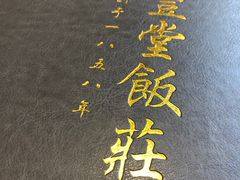 堂飯莊
于一八五八年